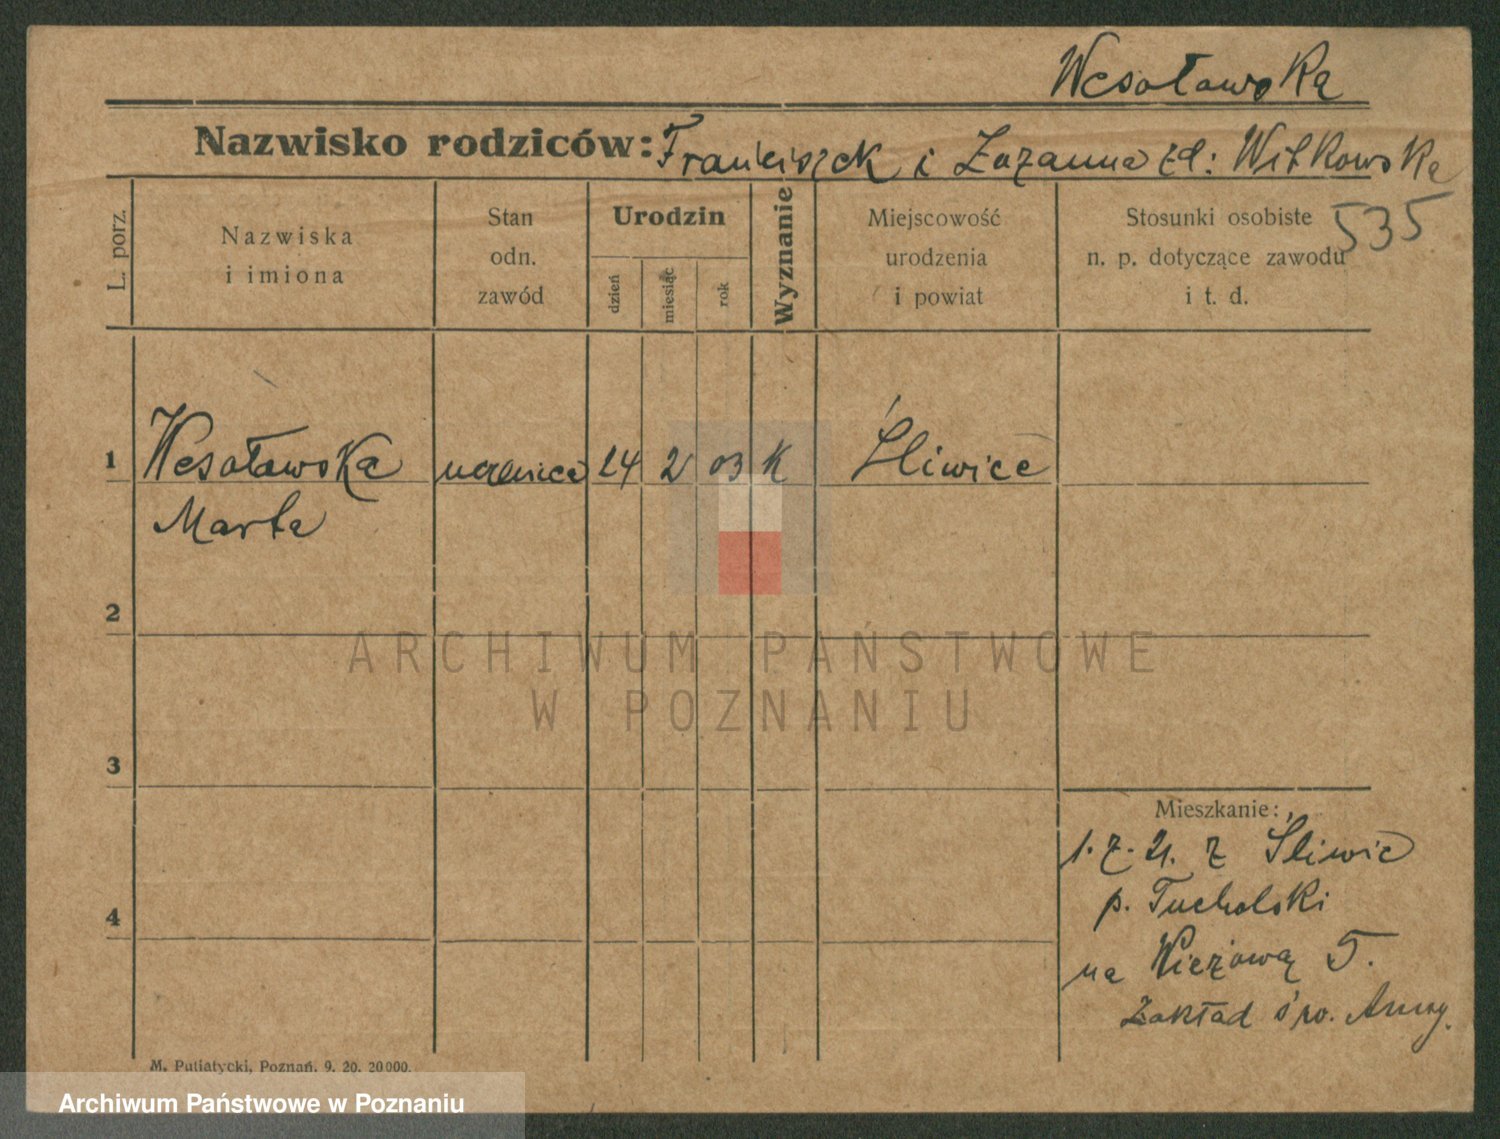 Wesołowska
Nazwisko rodziców: Franciszek i Zuzanna zd: Witkowska
535
L. porz.
Nazwiska
i imiona
Stan
odn.
zawód
Urodzin
dzień
miesiąc
rok
Wyznanie
Miejscowość
urodzenia
i powiat
Stosunki osobiste
n. p. dotyczące zawodu
i t. d.
1 Wesołowska uczenica 24 2 03 K Śliwice
Marta
2
3
4
Mieszkanie:
1. 7. 21. z Śliwic
p. Tucholski
na Wieżową 5.
Zakład św. Anny.
M. Putiatycki, Poznań. 9. 20. 20000.
ARCHIWUM PAŃSTWOWE
W POZNANIU
Archiwum Państwowe w Poznaniu